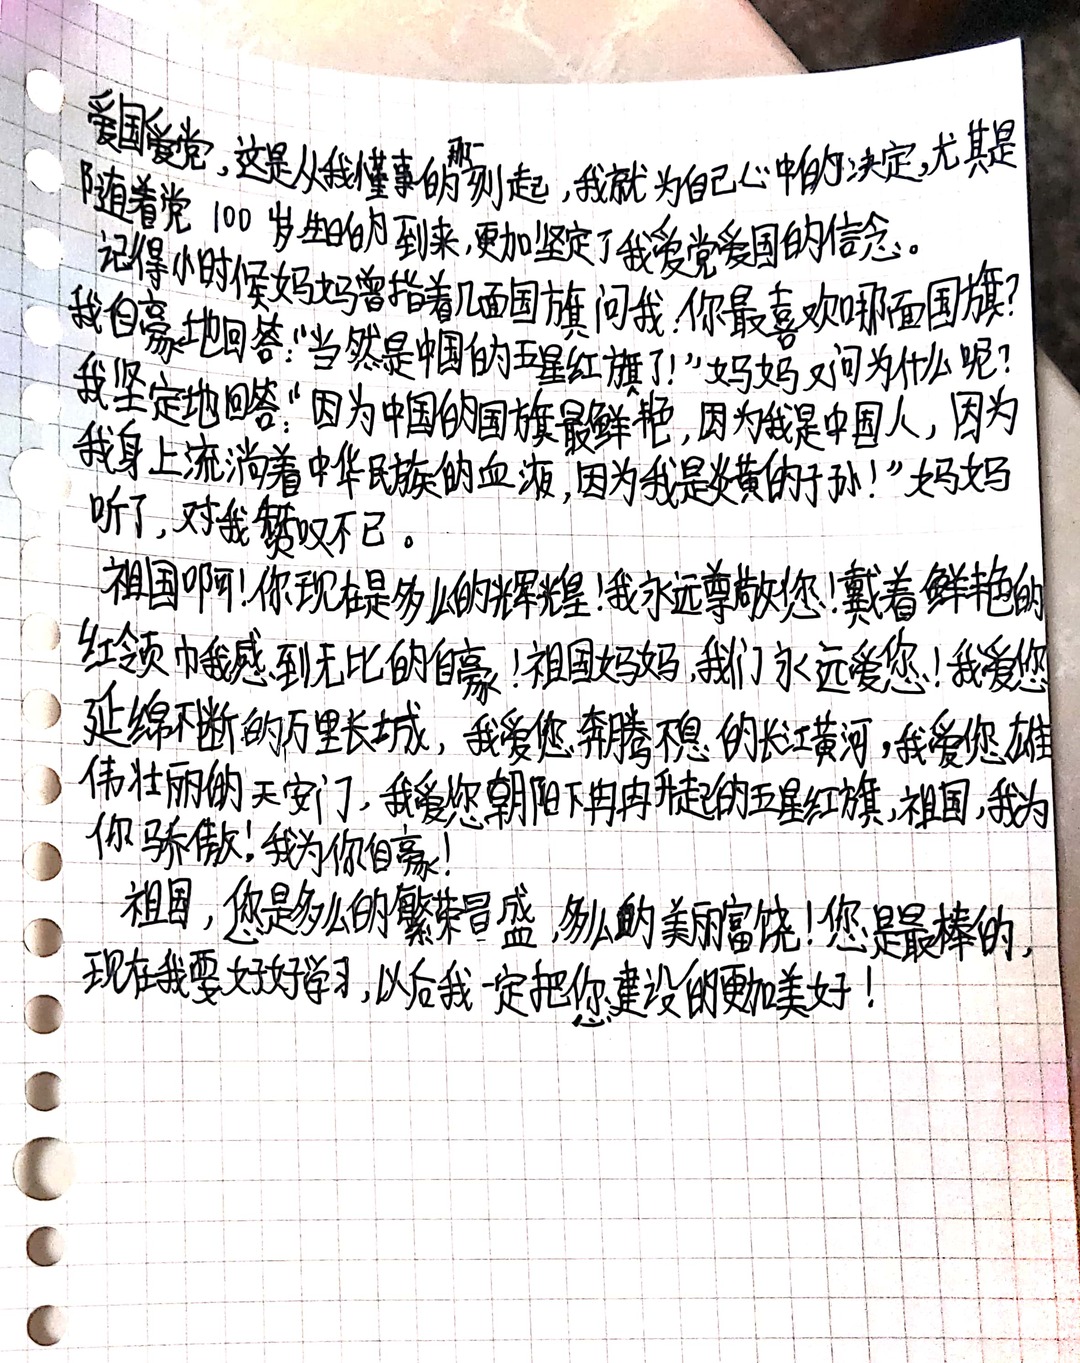 爱国爱党，这是从我懂事的那一刻起，我就为自己心中的决定，尤其是
随着党100岁生日的到来，更加坚定了我爱党爱国的信念。
记得小时候妈妈曾指着几面国旗问我：你最喜欢哪面国旗？
我自豪地回答：“当然是中国的五星红旗了！”妈妈又问为什么呢？
我坚定地回答：“因为中国的国旗最鲜艳，因为我是中国人，因为
我身上流淌着中华民族的血液，因为我是炎黄的子孙！”妈妈
听了，对我赞叹不已。
祖国啊！你现在是多么的辉煌！我永远尊敬您！戴着鲜艳的
红领巾我感到无比的自豪！祖国妈妈，我们永远爱您！我爱您
延绵不断的万里长城，我爱您奔腾不息的长江黄河，我爱您雄
伟壮丽的天安门，我爱您朝阳下冉冉升起的五星红旗，祖国，我为
你骄傲！我为你自豪！
祖国，您是多么的繁荣昌盛，多么的美丽富饶！您是最棒的，
现在我要好好学习，以后我一定把您建设的更加美好！